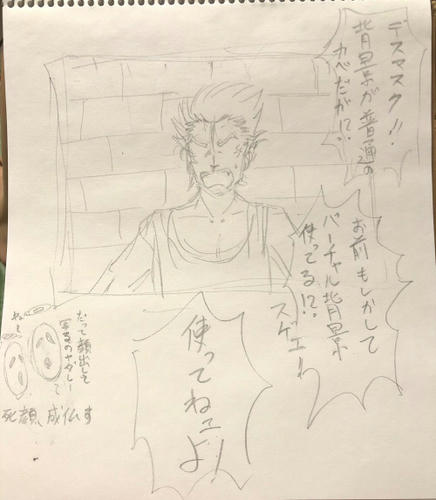 デスマスク!!
背景が普通の
カベだが!?
お前もしかして
バーチャル背景
使ってる!?
スゲェー
使ってねェよ!
だって顔出しで
ねー
死顔、成仏す